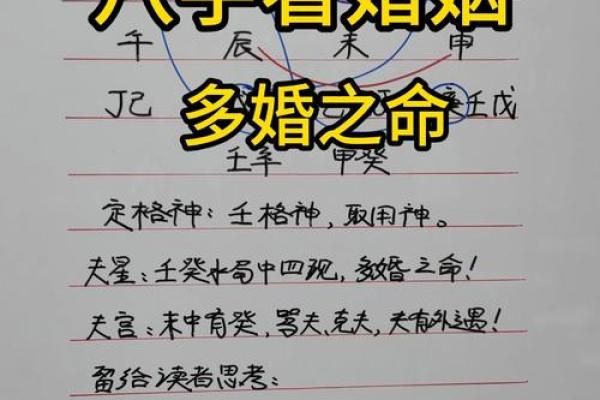 八字看婚姻
午 辰 未 申
丁己 庚壬戊
多婚之命
壬辛 甲癸
定格神：壬格神，取用神。
夫星：壬癸水局中四现，多婚之命！
夫宫：未中有癸，骂夫、克夫，夫有外遇！
留给读者思考：